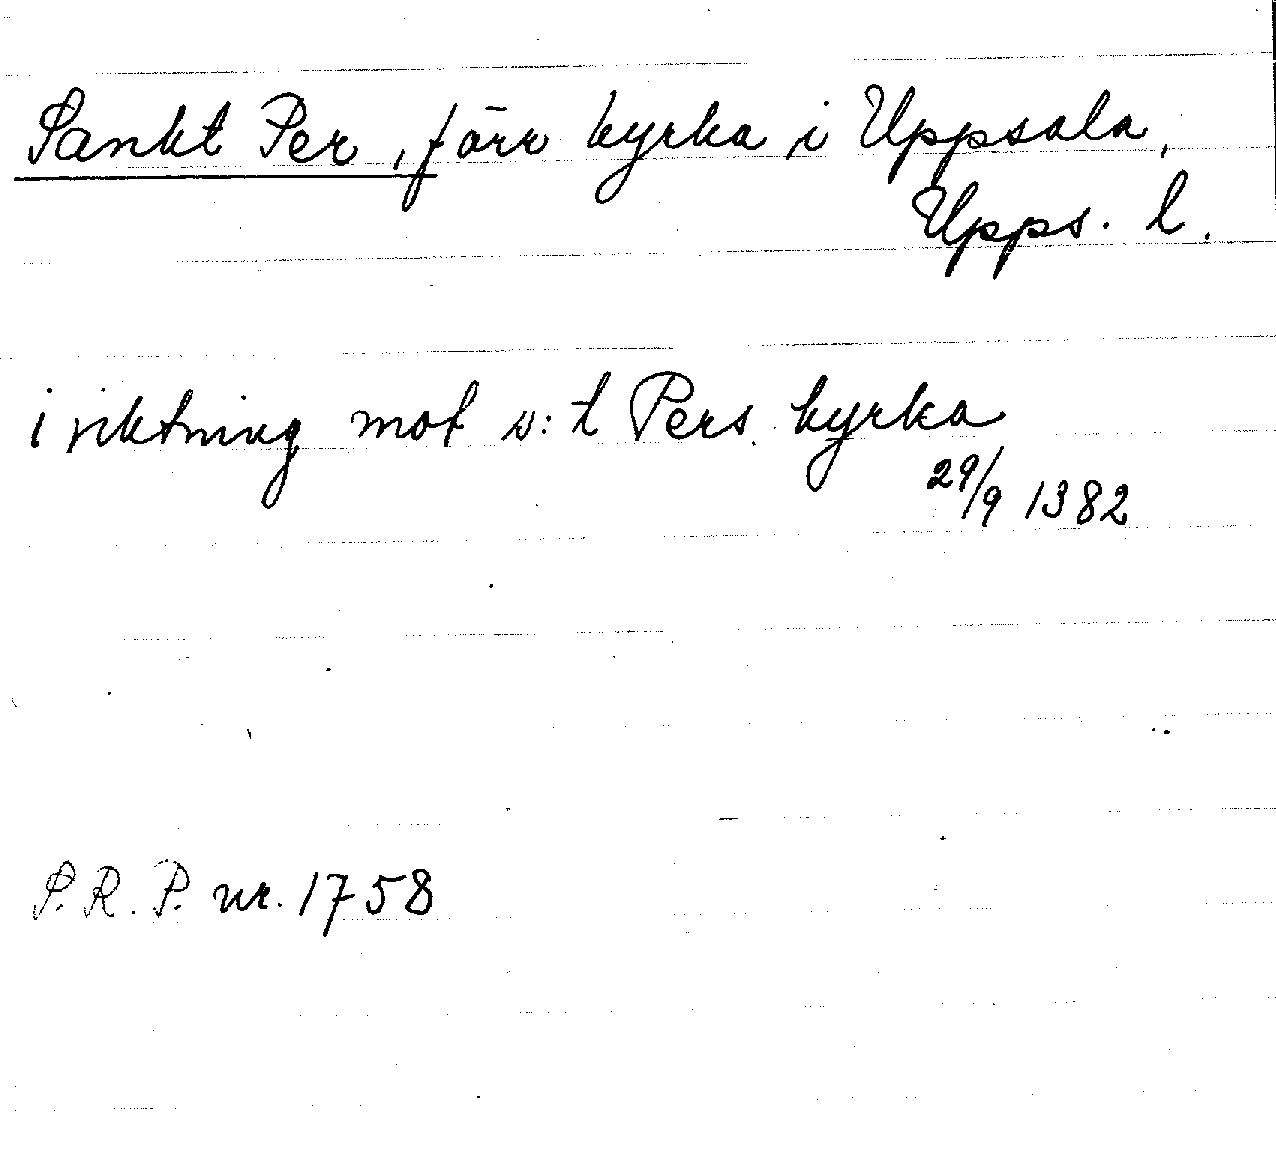 Sankt Per, förr kyrka i Uppsala,
Upps. l.
i riktning mot s:t Pers kyrka
29/9 1382
S.R.P. nr. 1758